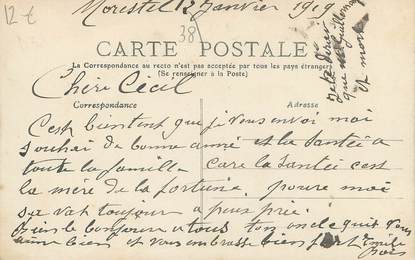 12 €
Morestel 12 Janvier 1919
38
CARTE POSTALE
La Correspondance au recto n'est pas acceptée par tous les pays étrangers
(Se renseigner à la Poste)
Chère Cécil
Correspondance
Adresse
C'est bientent que je vous envoi moi
souhai de bonne anné est la Santée a
toute la famille care la Santée cest
la mère de la fortune. poure moi
sa vat toujour a peus prée.
bien le bonjour a tous ton oncle qui t
aime bien et vous embrasse bien fort Emile
que Guillomon
et moi